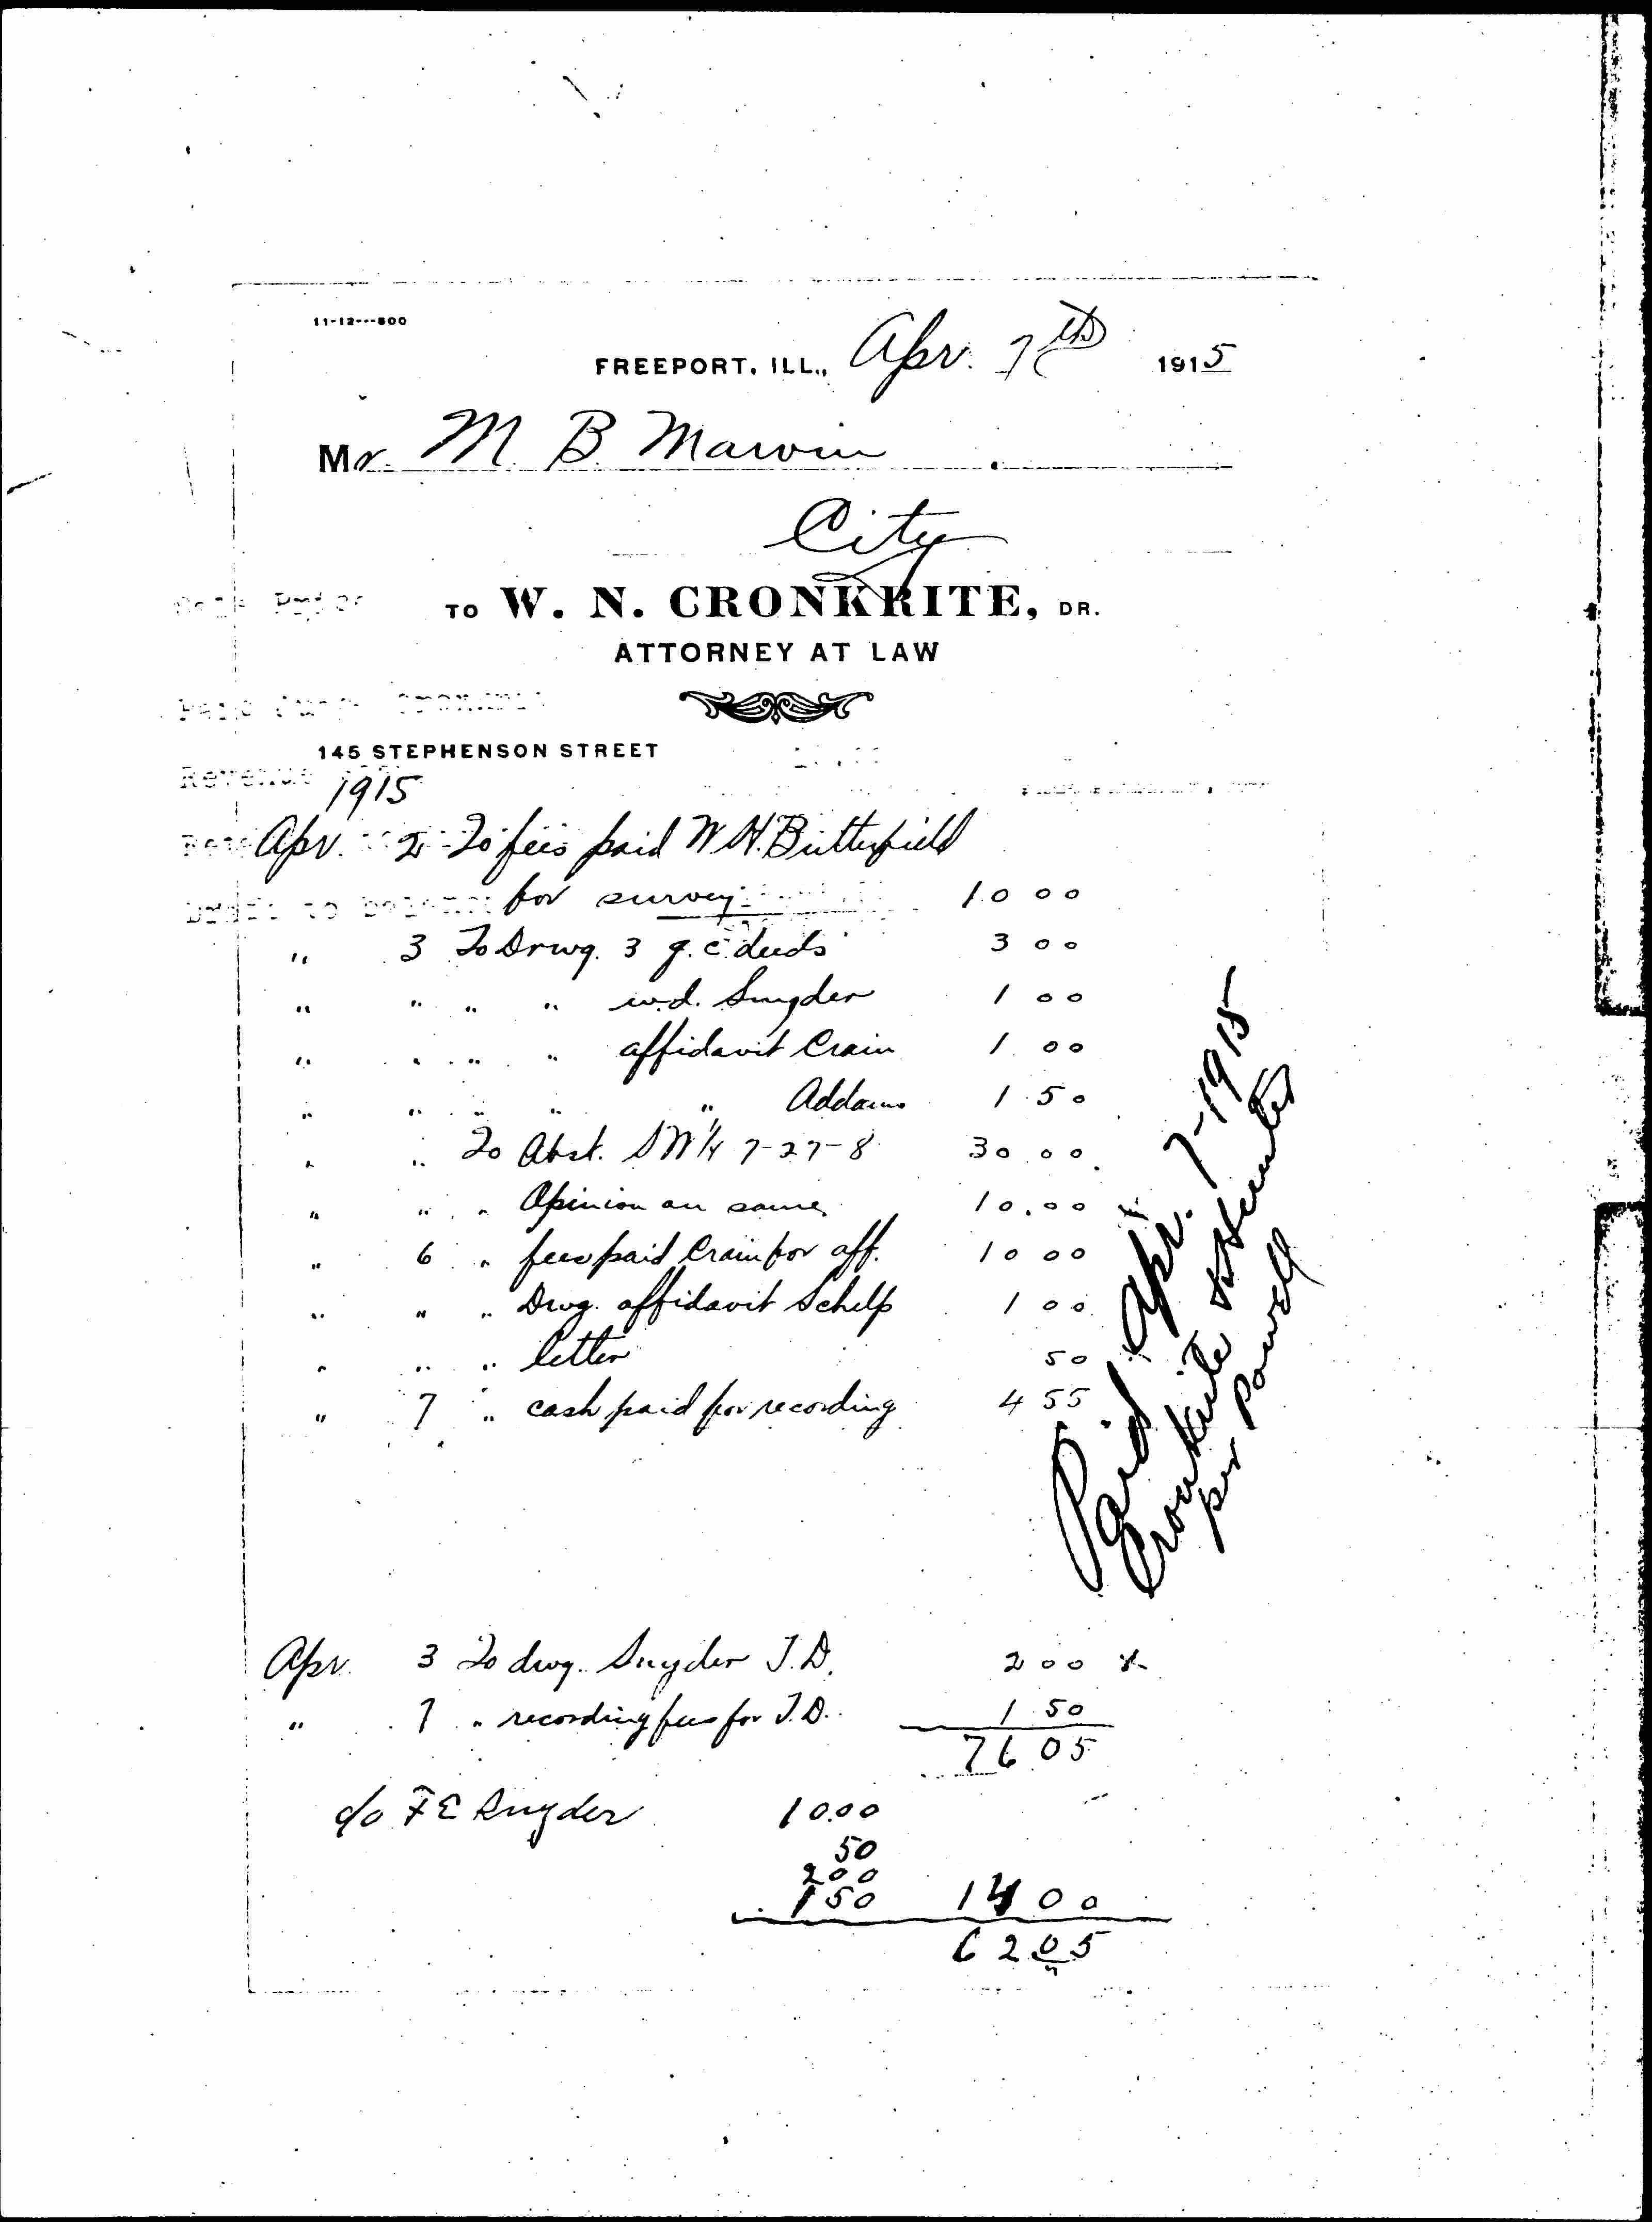 11-12---500
FREEPORT, ILL., Apr. 7th 1915
Mr. M. B. Marvin
City
TO W. N. CRONKRITE, DR.
ATTORNEY AT LAW
145 STEPHENSON STREET
1915
Apr. 2 To fees paid W. H. Butterfield
for survey 10 00
" 3 To Drwg. 3 q. c. deeds 3 00
" " " " w.d. Snyder 1 00
" " " " affidavit Crain 1 00
" " " " " Addams 1 50
" " To Abst. SW 1/4 7-27-8 30 00
" " " Opinion on same 10.00 x
" 6 " fees paid Crain for aff. 10 00
" " " Dwg. affidavit Schelp 1 00
" " " letter 50
" 7 " cash paid for recording 4 55
Paid Apr. 7-1915
Cronkrite &
per Powell
Apr. 3 To dwg. Snyder T.D. 2 00 x
" 7 " recording fees for T.D. 1 50
76 05
c/o F E Snyder 10.00
50
2 00
1 50 14 00
62 05